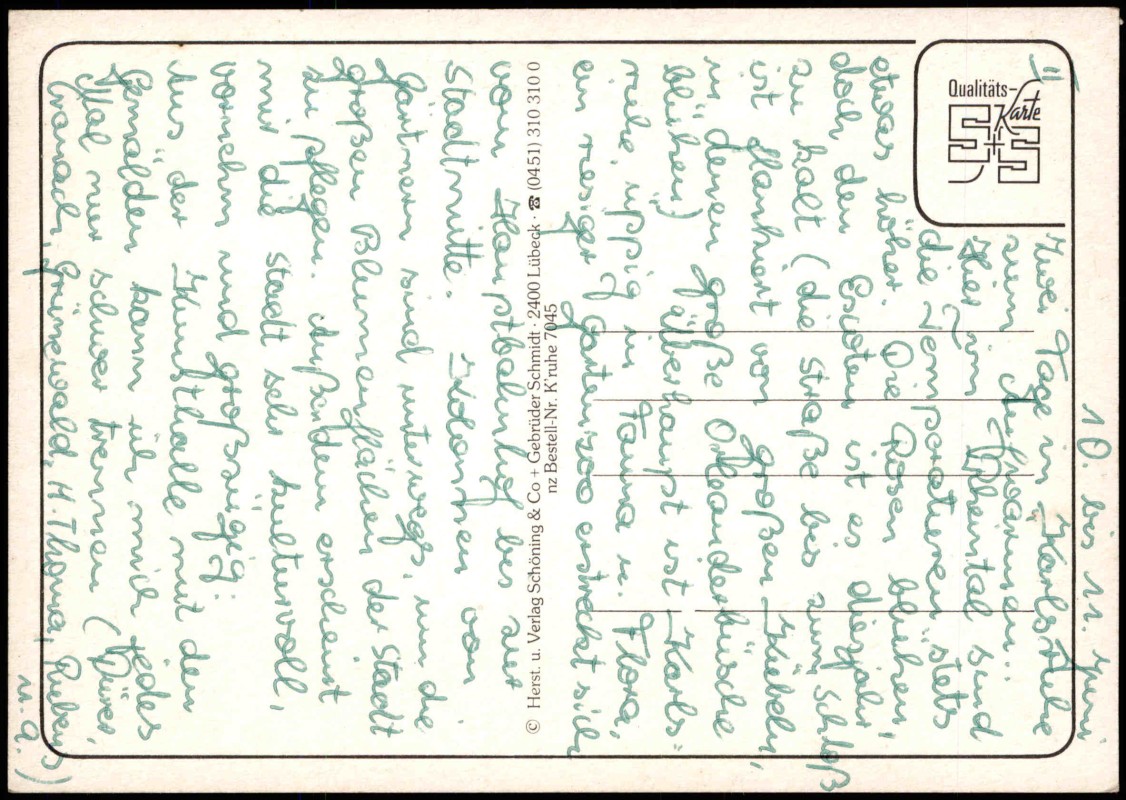 Qualitäts-
Karte
S+S
10. bis 11. Juni
Zwei Tage in Karlsruhe
zum Aufwärmen.
Hier im Rheintal sind
die Temperaturen stets
etwas höher. Die Rosen blühen,
doch den Exoten ist es diesjahr
zu kalt (die Straße bis zum Schloß
ist flankiert von großen Kübeln,
in denen große Oleanderbüsche
blühen) Überhaupt ist Karls
ruhe üppig in Fauna u. Flora,
ein riesiger Gartenzoo erstreckt sich
© Herst. u. Verlag Schöning & Co + Gebrüder Schmidt · 2400 Lübeck · ☎ (0451) 310 310 0
nz Bestell-Nr. K'ruhe 7045
vom Hauptbahnhof bis zur
Stadtmitte. Kolonnen von
Gärtnern sind unterwegs, um die
großen Blumenflächen der Stadt
zu pflegen. Außerdem erscheint
mir die Stadt sehr kulturvoll,
vornehm und großzügig:
Aus der Kunsthalle mit den
Gemälden kann ich mich jedes
Mal nur schwer trennen (Dürer,
Cranach, Grünewald, H. Thoma, Rubens
u. a.)